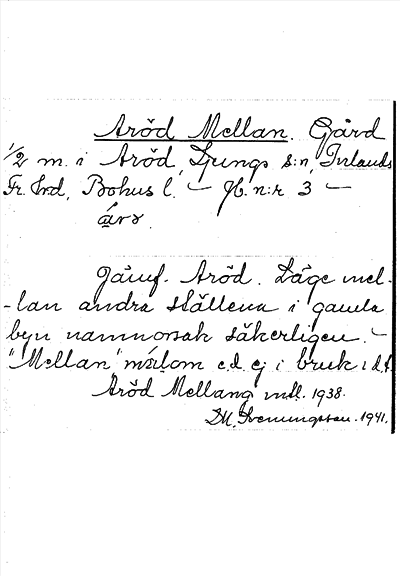 Aröd Mellan. Gård
1/2 m. i Aröd, Ljungs s:n, Inlands
Fr. Hrd, Bohus l. – Jb. n:r 3 –

Jämf. Aröd. Läge mel-
-lan andra ställena i gamla
byn namnorsak säkerligen. –
"Mellan" e.d. ej i bruk i d.t.
Aröd Mellang mtl. 1938.
D.M. Svenungsson. 1941.